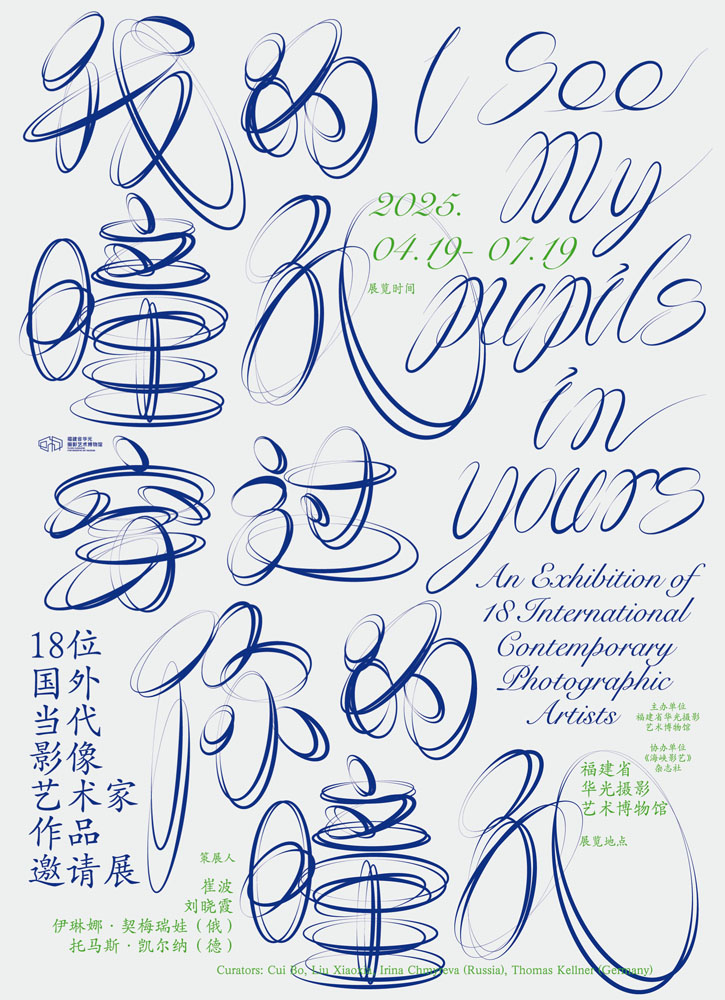 我的
瞳孔
穿过
你的
瞳孔
I See
My
pupils
in
yours
2025.
04.19- 07.19
展览时间
福建省华光
摄影艺术博物馆
An Exhibition of
18 International
Contemporary
Photographic
Artists
18位
国外
当代
影像
艺术家
作品
邀请展
主办单位
福建省华光摄影
艺术博物馆
协办单位
《海峡影艺》
杂志社
福建省
华光摄影
艺术博物馆
展览地点
策展人
崔波
刘晓霞
伊琳娜·契梅瑞娃（俄）
托马斯·凯尔纳（德）
Curators: Cui Bo, Liu Xiaoxia, Irina Chmyreva (Russia), Thomas Kellner (Germany)